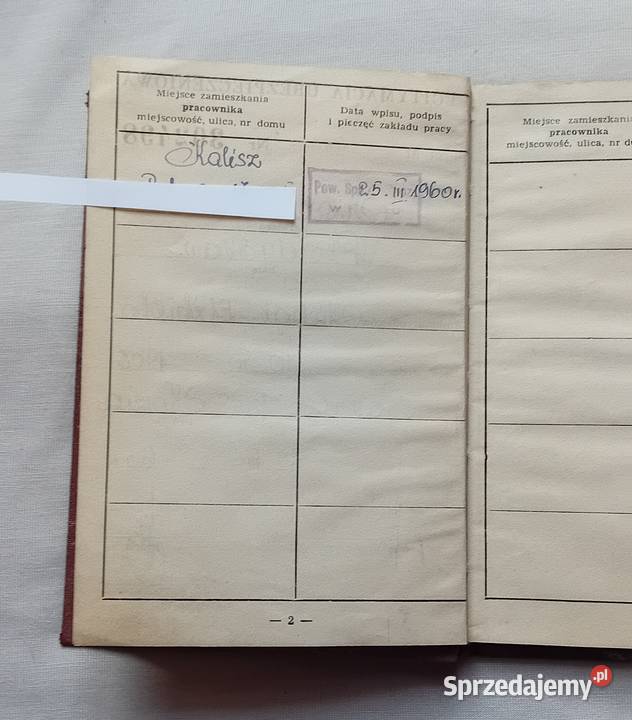 Miejsce zamieszkania
pracownika
miejscowość, ulica, nr domu
Data wpisu, podpis
i pieczęć zakładu pracy
Kalisz
Pow. Sp
25. III 1960r.
— 2 —
Miejsce zamieszkania
pracownika
miejscowość, ulica, nr do
Sprzedajemy.pl